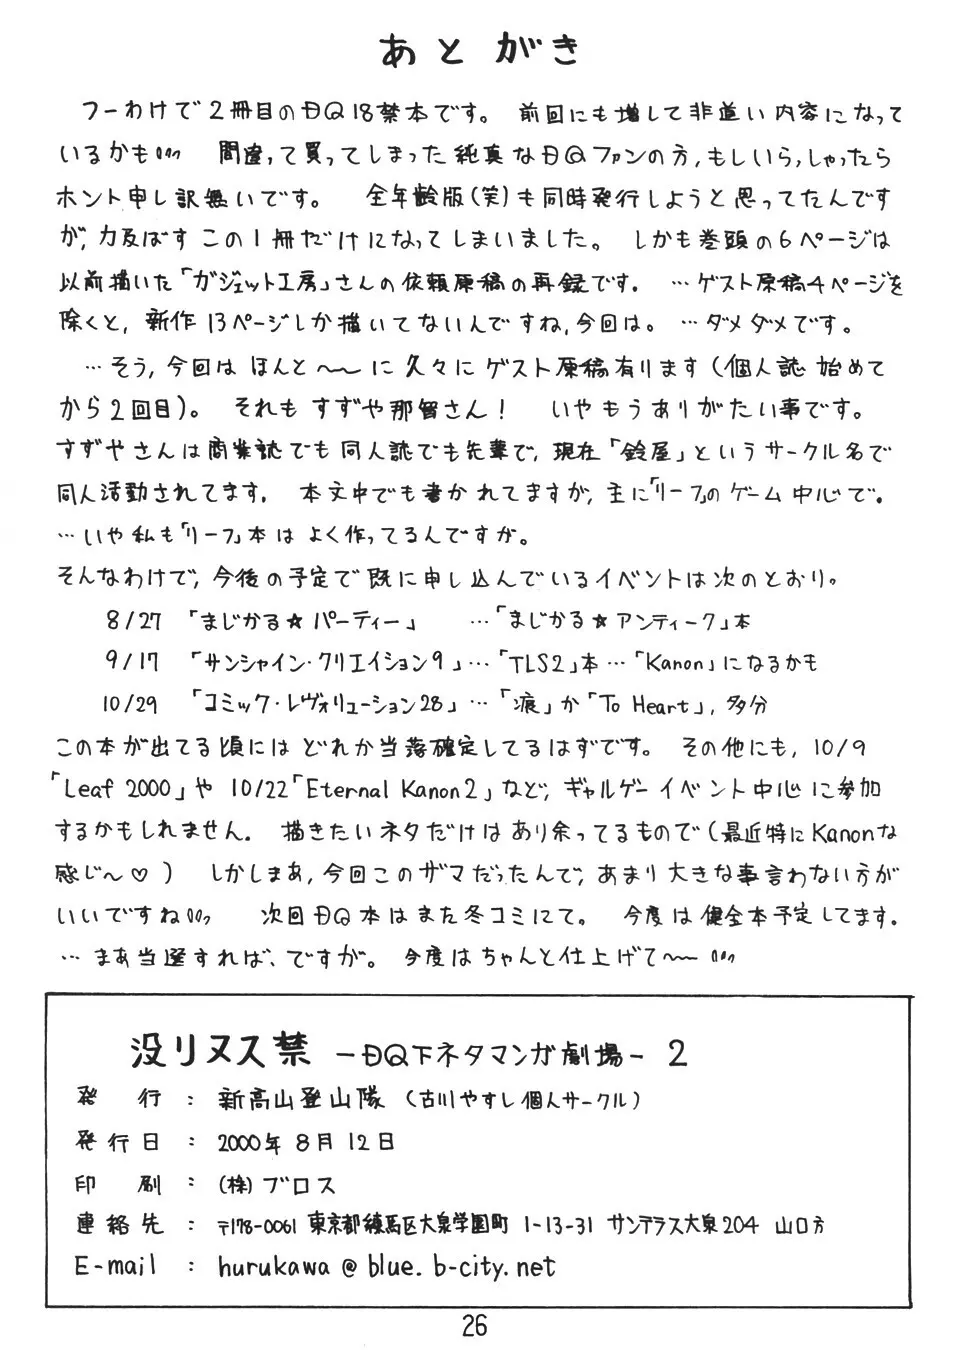 あとがき
つーわけで2冊目のDQ18禁本です。 前回にも増して非道い内容になって
いるかも… 間違って買ってしまった純真なDQファンの方,もしいらっしゃったら
ホント申し訳無いです。 全年齢版(笑)も同時発行しようと思ってたんです
が,力及ばずこの1冊だけになってしまいました。 しかも巻頭の6ページは
以前描いた「ガジェット工房」さんの依頼原稿の再録です。 …ゲスト原稿4ページを
除くと,新作13ページしか描いてないんですね,今回は。 …ダメダメです。
…そう,今回はほんと〜〜に久々にゲスト原稿有ります(個人誌始めて
から2回目)。 それもすずや那智さん! いやもうありがたい事です。
すずやさんは商業誌でも同人誌でも先輩で,現在「鈴屋」というサークル名で
同人活動されてます。 本文中でも書かれてますが,主に「リーフ」のゲーム中心で。
…いや私も「リーフ」本はよく作ってるんですが。
そんなわけで,今後の予定で既に申し込んでいるイベントは次のとおり。
8/27 「まじかる☆パーティー」 …「まじかる☆アンティーク」本
9/17 「サンシャイン・クリエイション9」…「TLS2」本…「Kanon」になるかも
10/29 「コミック・レヴォリューション28」…「痕」か「To Heart」,多分
この本が出てる頃にはどれか当落確定してるはずです。 その他にも,10/9
「Leaf 2000」や10/22「Eternal Kanon2」など,ギャルゲーイベント中心に参加
するかもしれません。 描きたいネタだけはあり余ってるもので(最近特にKanonな
感じ〜♡) しかしまあ,今回このザマだったんで,あまり大きな事言わない方が
いいですね… 次回DQ本はまた冬コミにて。 今度は健全本予定してます。
…まあ当選すれば、ですが。 今度はちゃんと仕上げて〜〜…
没リヌス禁 －DQ下ネタマンガ劇場－ 2
発行 : 新高山登山隊 (古川やすし個人サークル)
発行日 : 2000年8月12日
印刷 : (株)ブロス
連絡先 : 〒178-0061 東京都練馬区大泉学園町 1-13-31 サンテラス大泉204 山口方
E-mail : hurukawa@blue.b-city.net
26